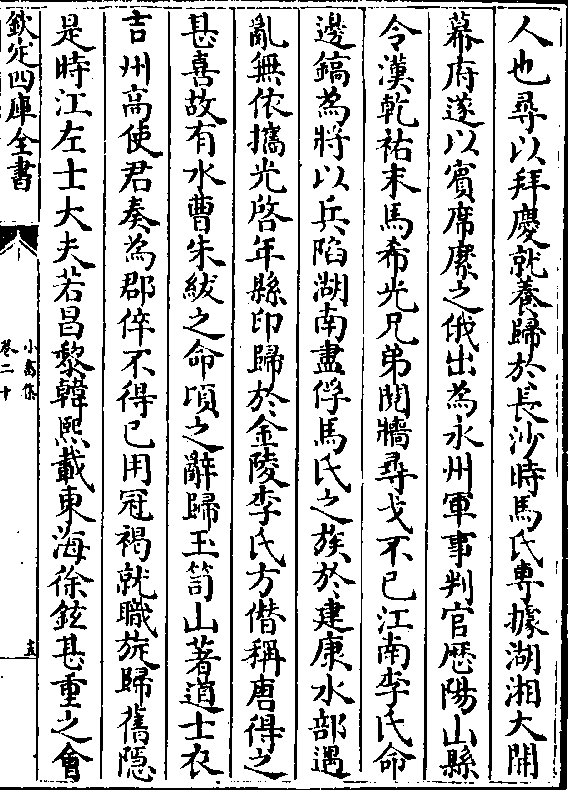 人也尋以拜慶就養歸於長沙時馬氏專據湖湘大開
幕府遂以賓席縻之俄出為永州軍事判官歴陽山縣
令漢乾祐末馬希光兄弟鬩牆尋戈不已江南李氏命
邊鎬為將以兵陷湖南盡俘馬氏之族於建康水部遇
亂無依擕光啓年縣印歸於金陵李氏方僣稱唐得之
甚喜故有水曹朱紱之命頃之辭歸玉笥山著道士衣
吉州高使君奏為郡倅不得已用冠褐就職旋歸舊隠
是時江左士大夫若昌黎韓熙載東海徐鉉甚重之㑹
欽定四庫全書
小畜集
卷二十